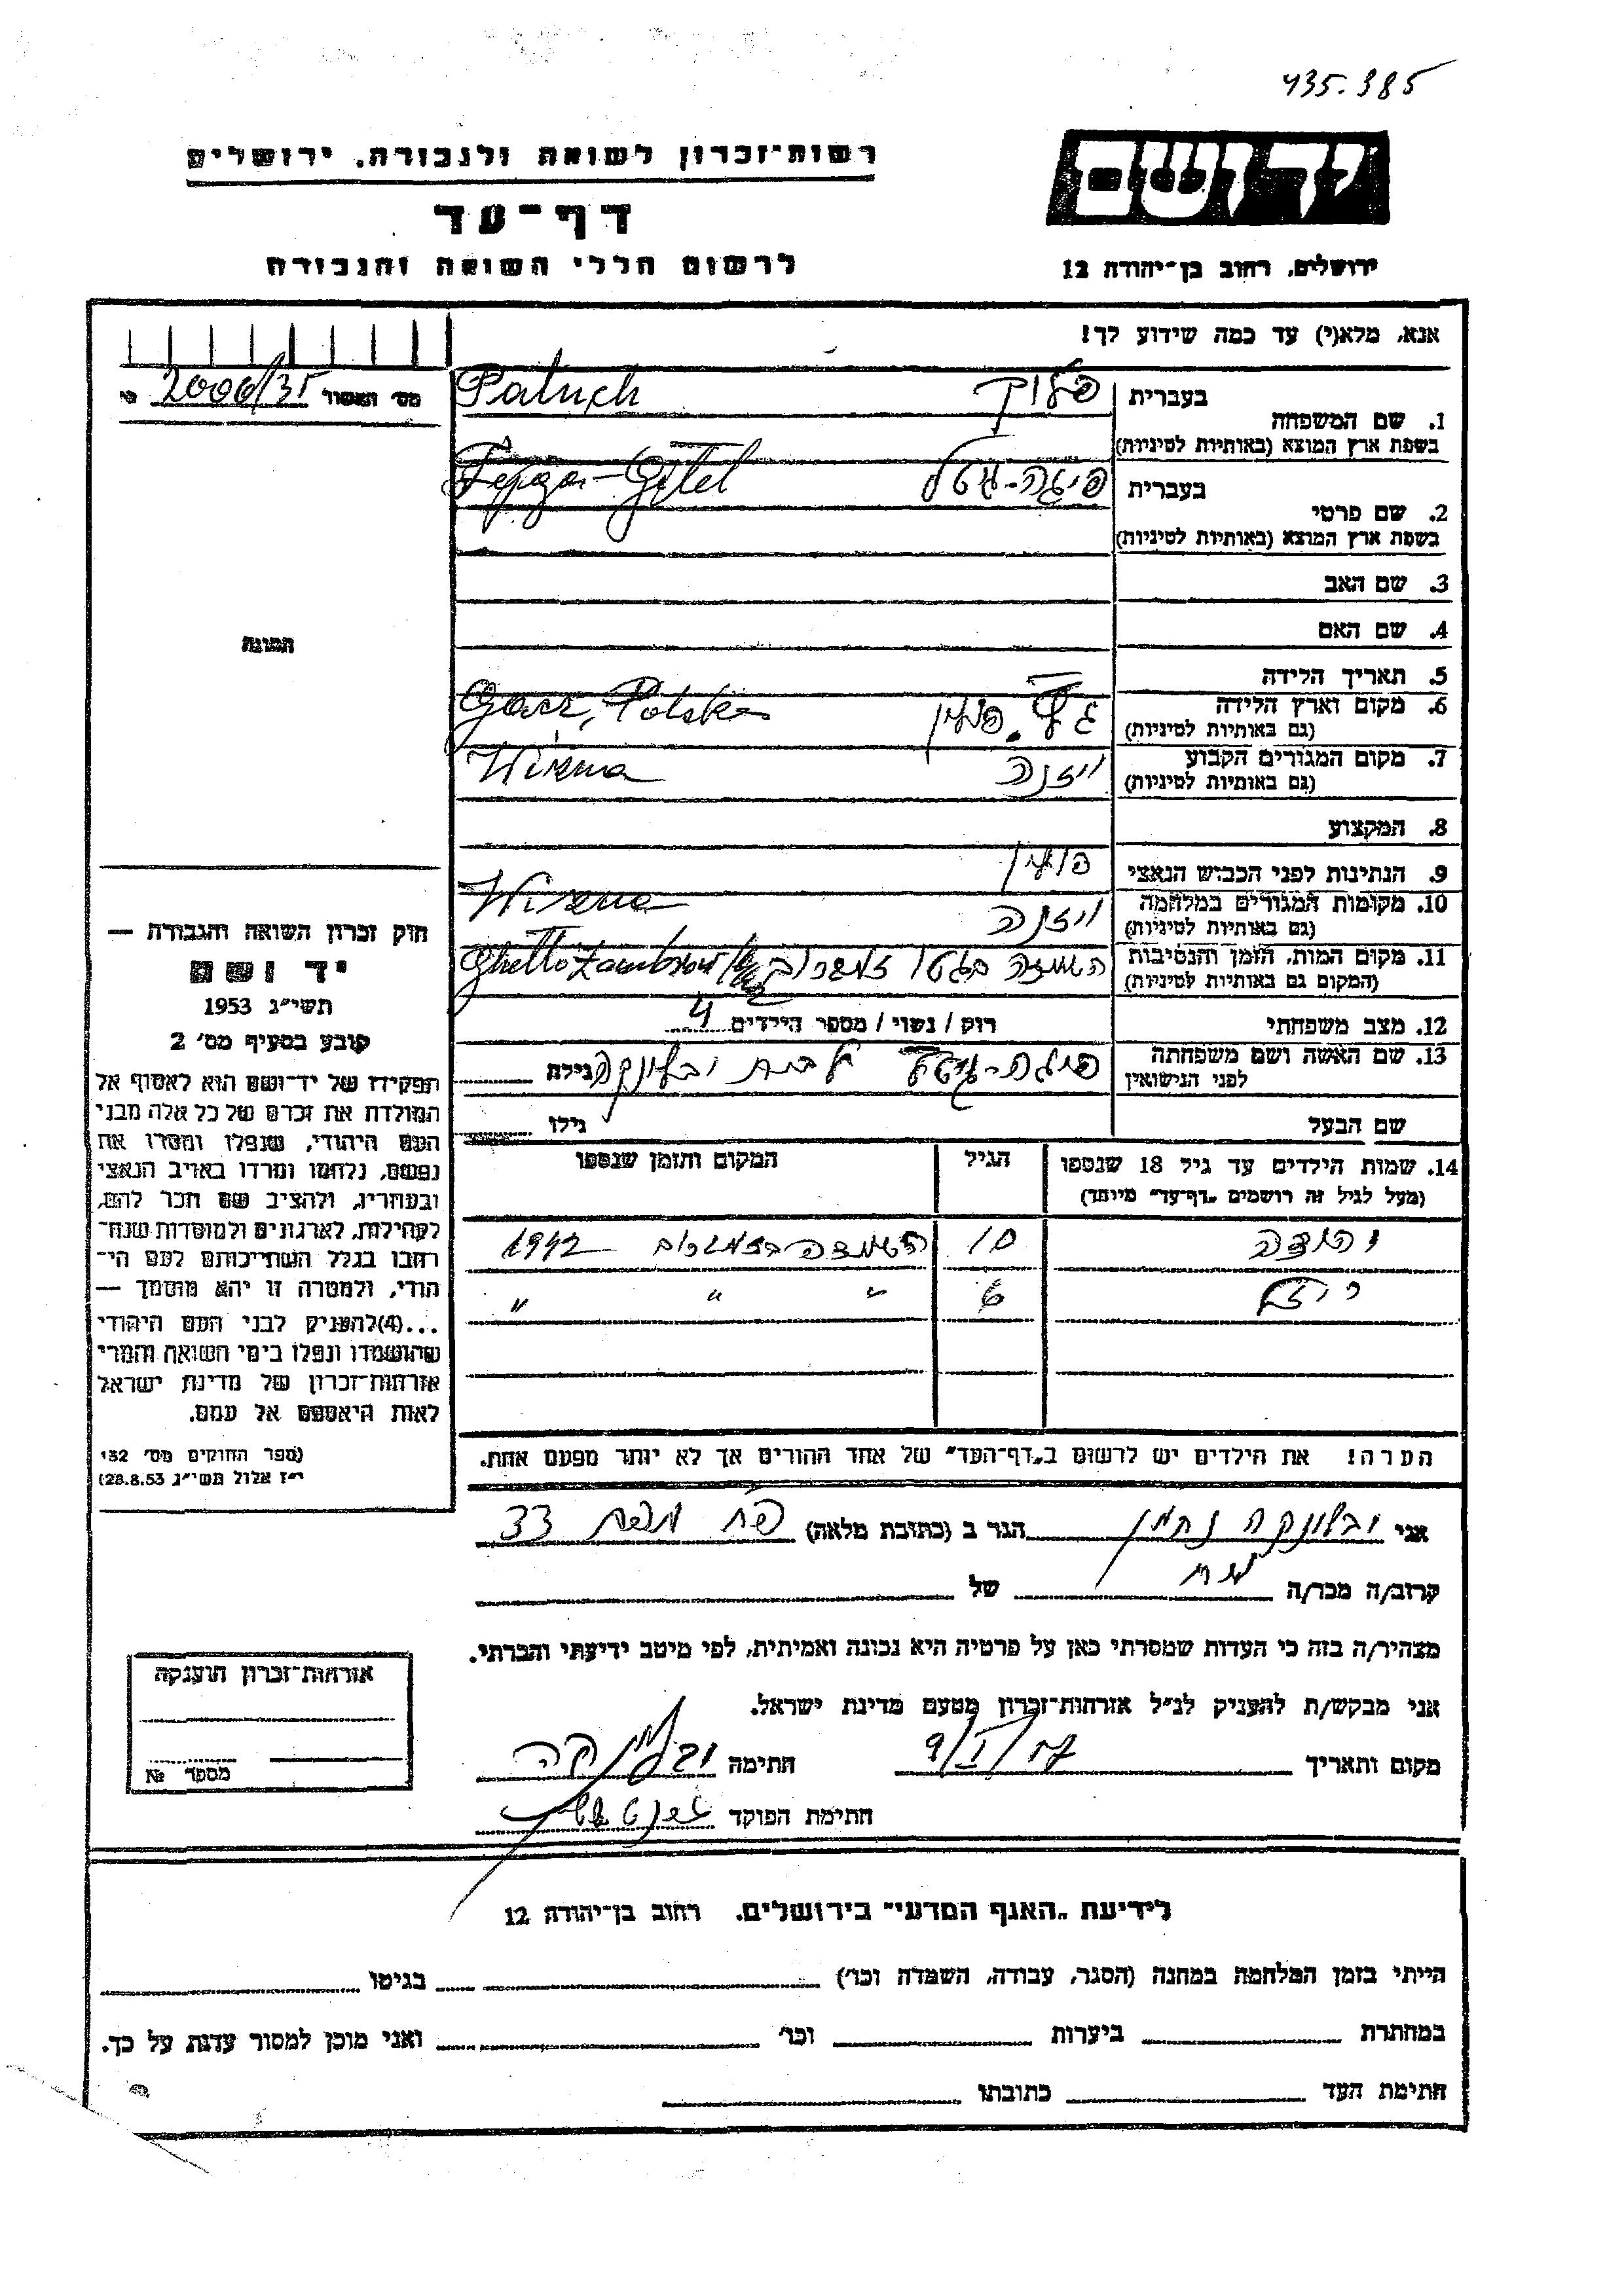 435.385
רשות־זכרון לשואה ולגבורה. ירושלים
דף־עד
לרשום חללי השואה והגבורה
יד ושם
ירושלים, רחוב בן־יהודה 12
אנא, מלא(י) עד כמה שידוע לך!
מס׳
1. שם המשפחה
בעברית
Patuch
בשפת ארץ המוצא (באותיות לטיניות)
2. שם פרטי
בעברית פיגה-גיטל
Fejga-Gitel
בשפת ארץ המוצא (באותיות לטיניות)
3. שם האב
4. שם האם
5. תאריך הלידה
6. מקום וארץ הלידה
(גם באותיות לטיניות)
Polska
7. מקום המגורים הקבוע ויזנה
(גם באותיות לטיניות) Wizna
8. המקצוע
9. הנתינות לפני הכבוש הנאצי פולין
10. מקומות המגורים במלחמה ויזנה
(גם באותיות לטיניות) Wizna
11. מקום המות, הזמן והנסיבות
(המקום גם באותיות לטיניות)
Ghetto Zambrow
12. מצב משפחתי רוק / נשוי / מספר הילדים 4
13. שם האשה ושם משפחתה
לפני הנישואין
פיגה-גיטל לבית ובלונקה גילה
שם הבעל גילו
14. שמות הילדים עד גיל 18 שנספו הגיל המקום והזמן שנספו
(מעל לגיל זה רושמים „דף־עד” מיוחד)
יהודה 10 1942
6 " " "
הערה! את הילדים יש לרשום ב„דף־העד” של אחד ההורים אך לא יותר מפעם אחת.
תמונה
חוק זכרון השואה והגבורה —
יד ושם
תשי״ג 1953
קובע בסעיף מס׳ 2
תפקידו של יד־ושם הוא לאסוף אל
המולדת את זכרם של כל אלה מבני
העם היהודי, שנפלו ומסרו את
נפשם, נלחמו ומרדו באויב הנאצי
ובעוזריו, ולהציב שם וזכר להם,
לקהילות, לארגונים ולמוסדות שנח־
רבו בגלל השתייכותם לעם הי־
הודי, ולמטרה זו יהא מוסמך —
...(4) להעניק לבני העם היהודי
שהושמדו ונפלו בימי השואה והמרי
אזרחות־זכרון של מדינת ישראל
לאות היאספם אל עמם.
(ספר החוקים מס׳ 132
י״ז אלול תשי״ג 28.8.53)
אני ובלונקה נתמן הגר ב (כתובת מלאה)
33
קרוב/ה מכר/ה של
מצהיר/ה בזה כי העדות שמסרתי כאן על פרטיה היא נכונה ואמיתית, לפי מיטב ידיעתי והכרתי.
אני מבקש/ת להעניק לנ״ל אזרחות־זכרון מטעם מדינת ישראל.
מקום ותאריך חתימה ובלונקה
חתימת הפוקד
אזרחות־זכרון הוענקה
מספר №
לידיעת „האגף המדעי” בירושלים. רחוב בן־יהודה 12
הייתי בזמן המלחמה במחנה (הסגר, עבודה, השמדה וכו׳) בגיטו
במחתרת ביערות וכו׳ ואני מוכן למסור עדות על כך.
חתימת העד כתובתו